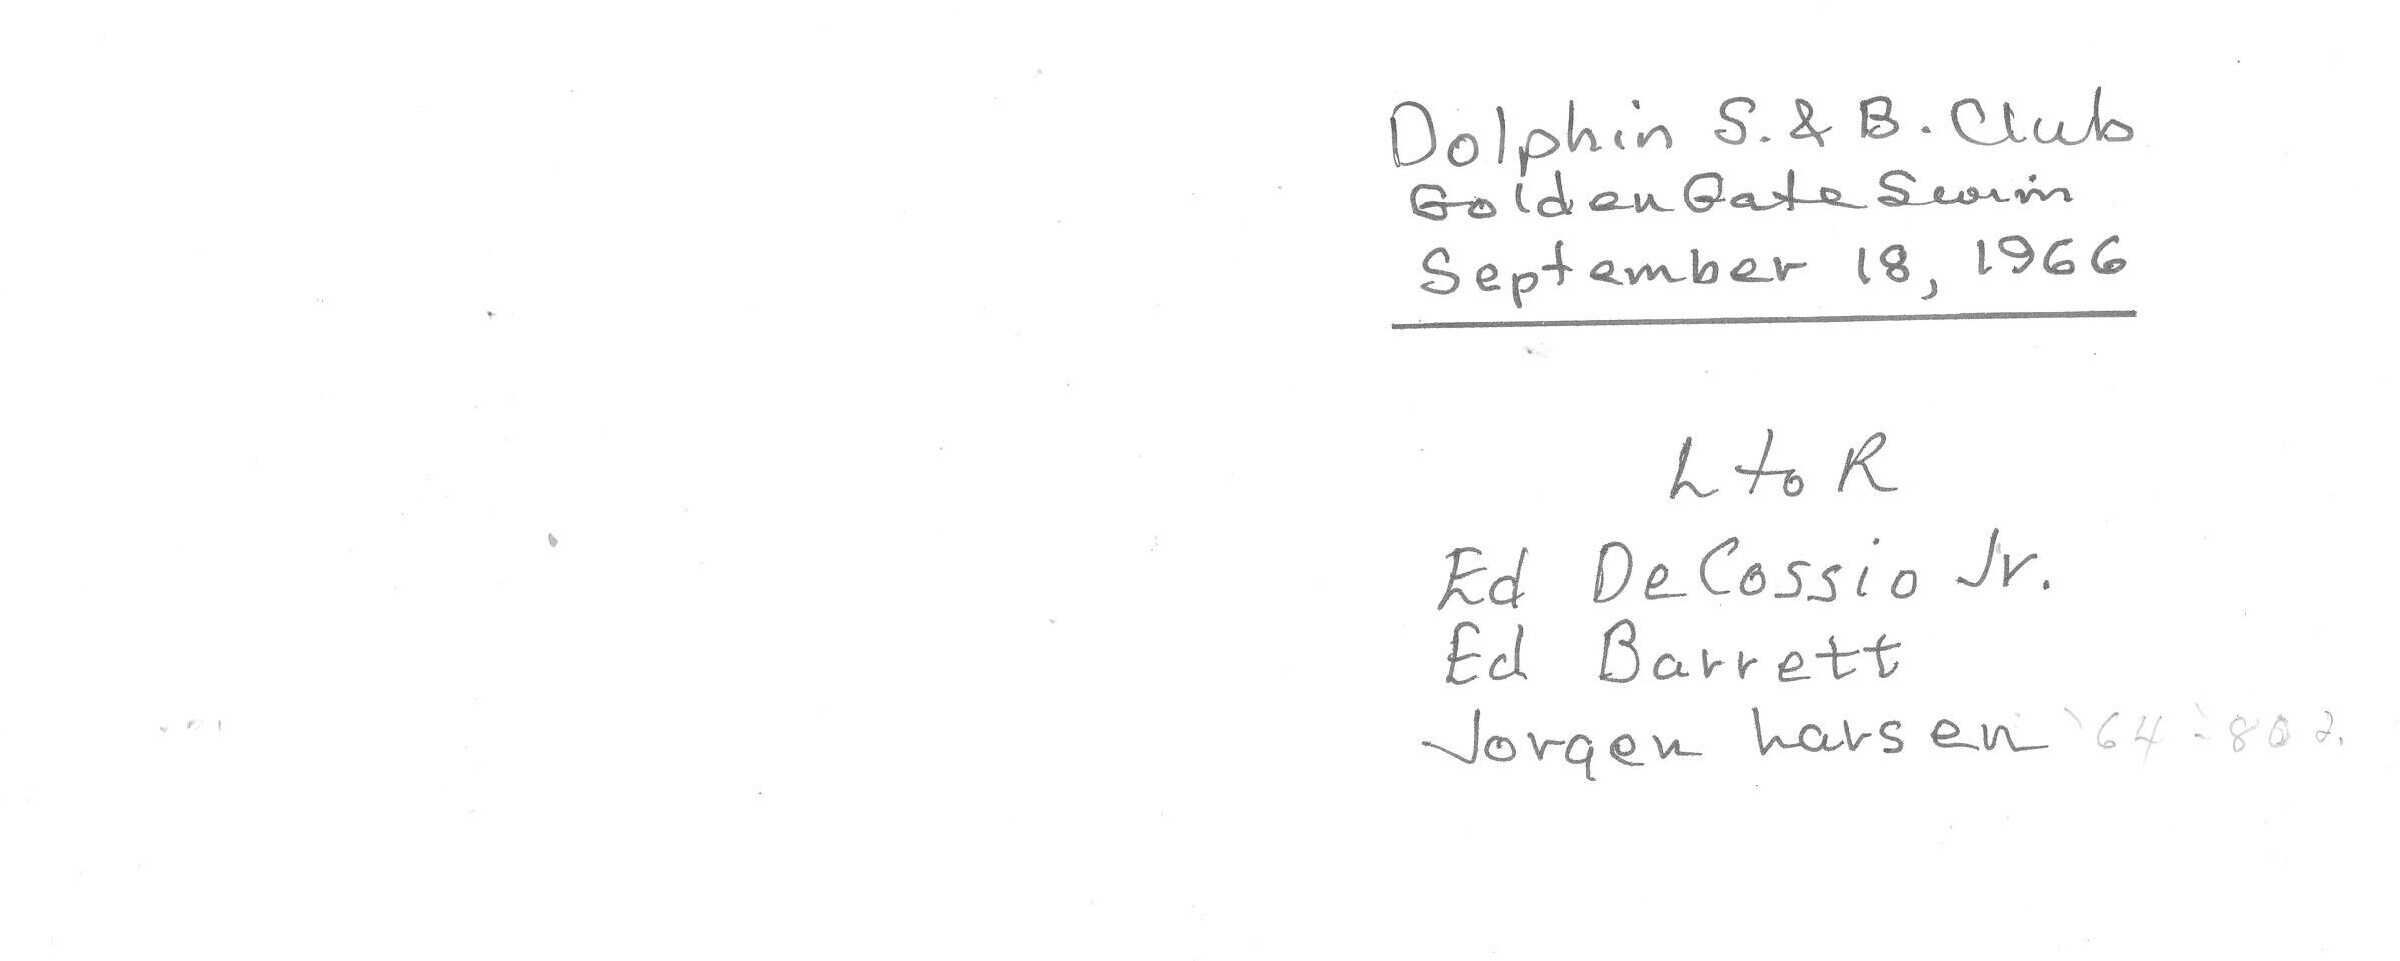 Dolphin S. & B. Club
Golden Gate Swim
September 18, 1966
L to R
Ed DeCossio Jr.
Ed Barrett
Jorgen Larsen